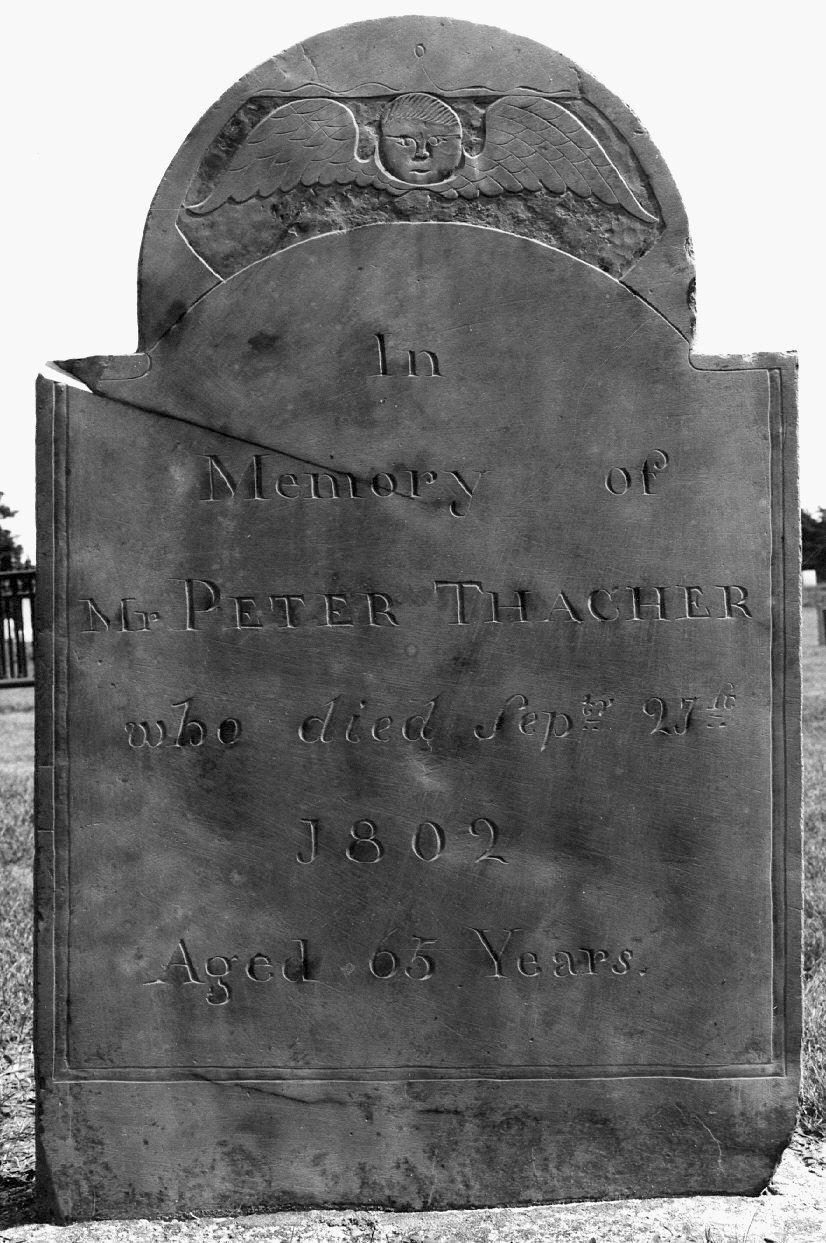 In
Memory of
Mr PETER THACHER
who died Sepᵗʳ 27ˢᵗ
1802
Aged 65 Years.